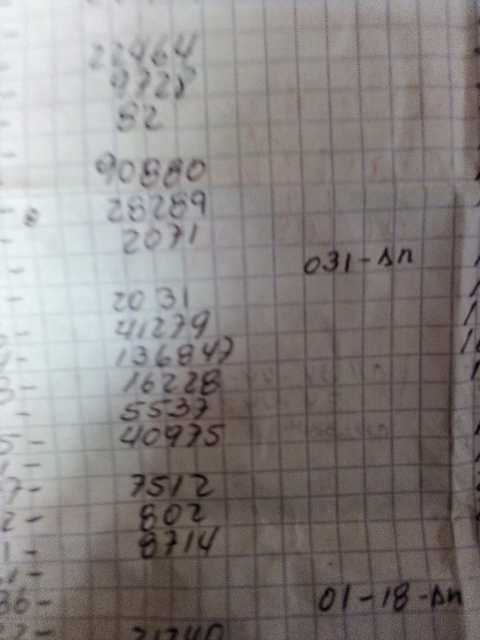 22464
9728
52
90880
28289
2071
031-Дп
2031
41279
136847
16228
5537
40975
7512
802
8714
01-18-Дп